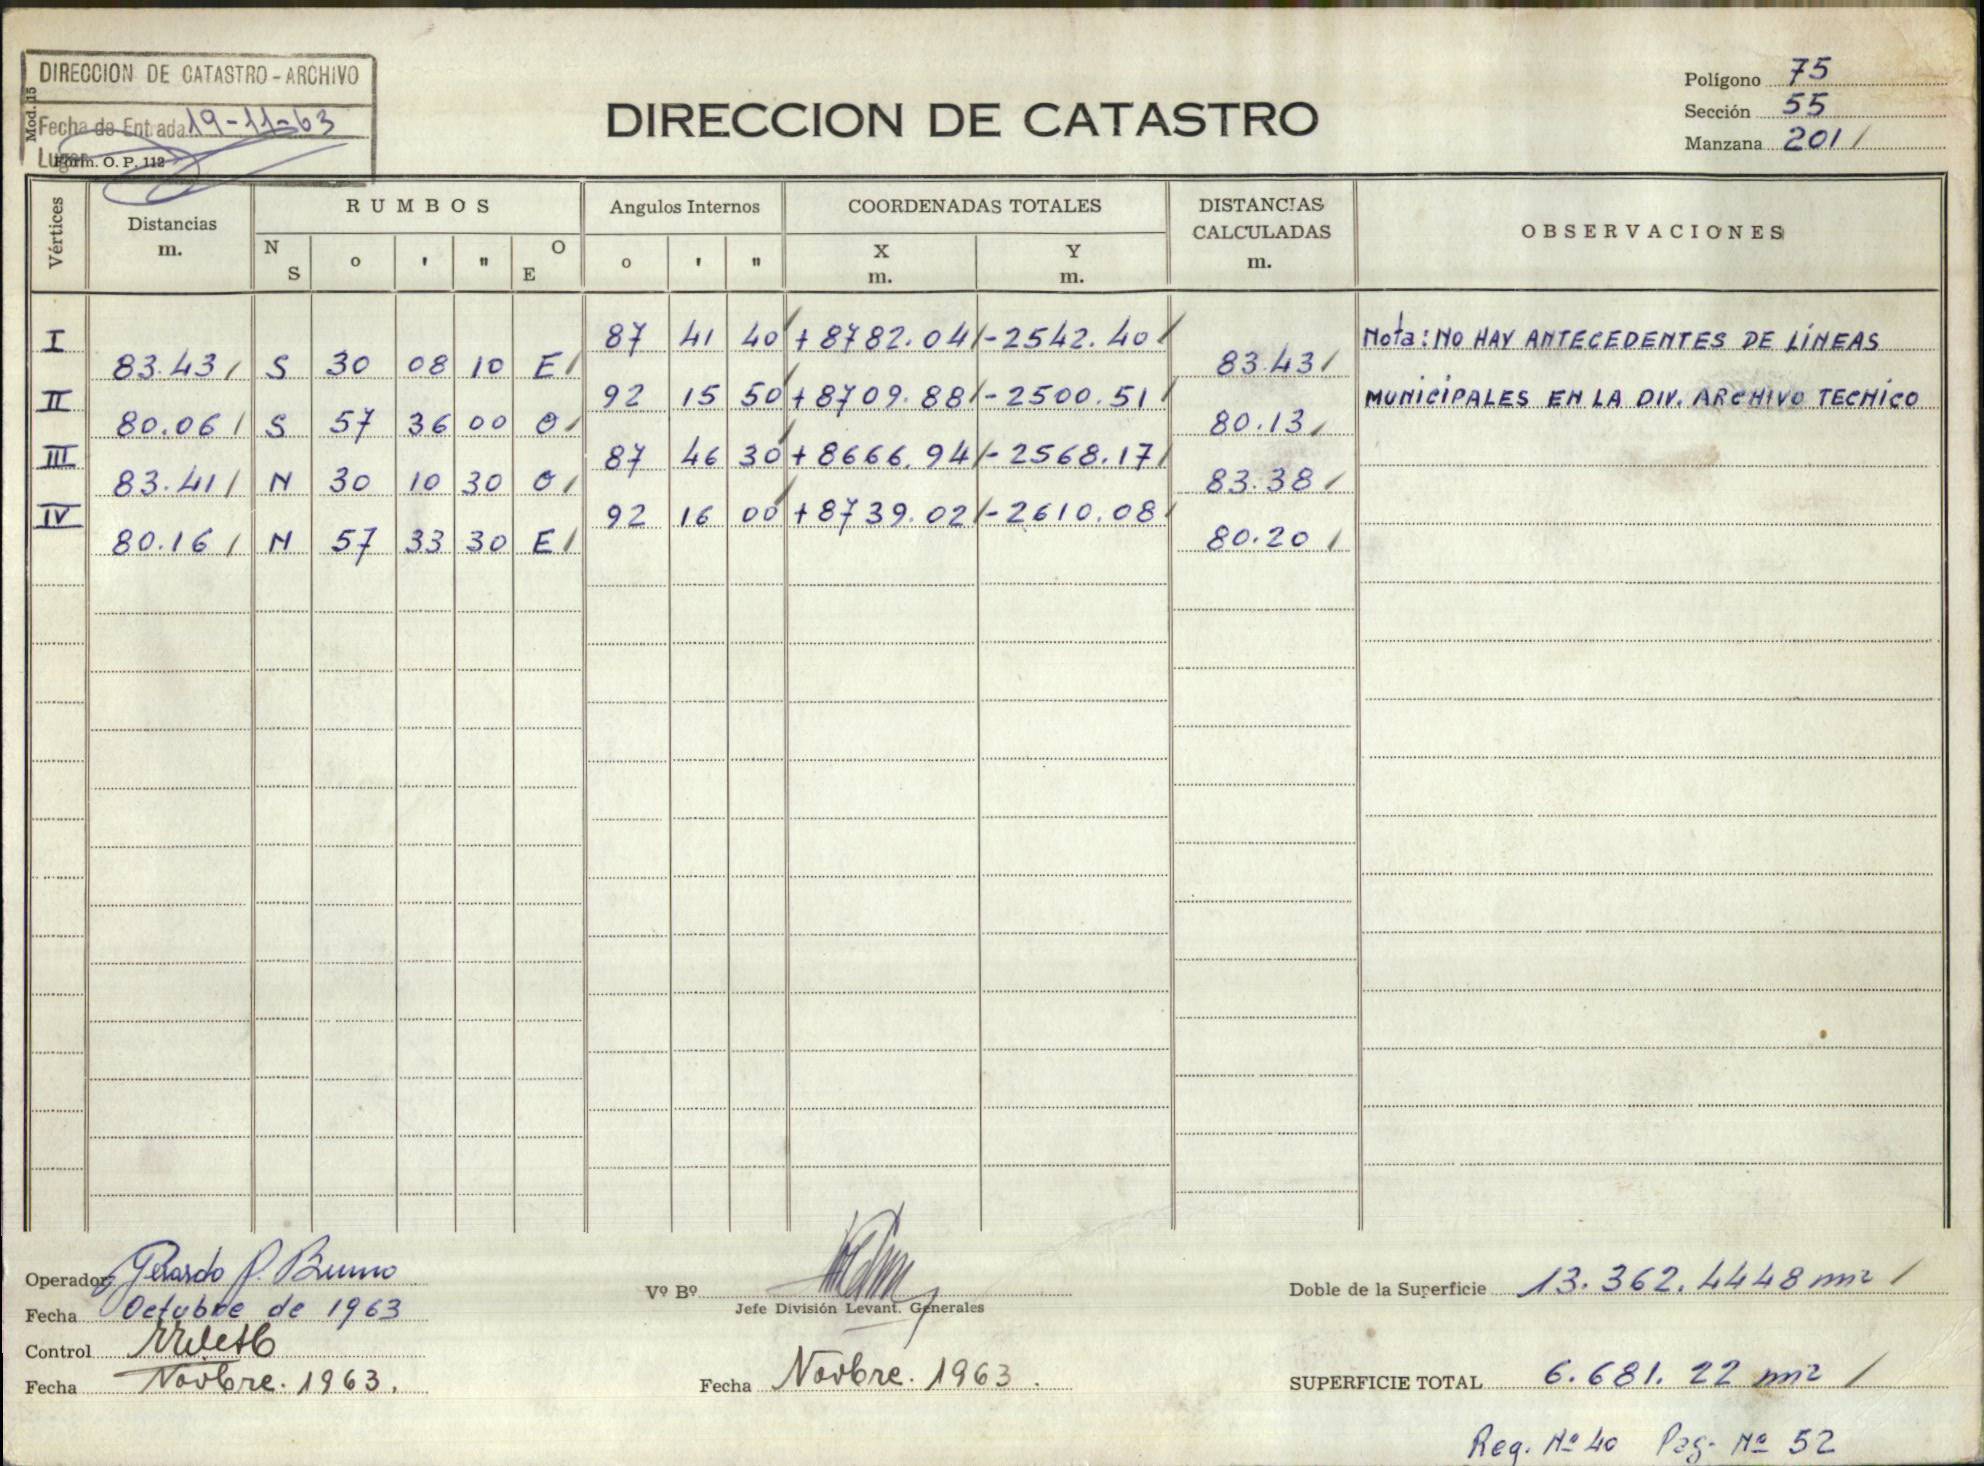 DIRECCION DE CATASTRO - ARCHIVO
Mod. 15
Fecha de Entrada 19-11-63
Lugar
Form. O. P. 112
DIRECCION DE CATASTRO
Polígono 75
Sección 55
Manzana 201 /
Vértices
Distancias m.
RUMBOS
N S ° ' " O E
Angulos Internos
° ' "
COORDENADAS TOTALES
X m. Y m.
DISTANCIAS CALCULADAS m.
OBSERVACIONES
I 87 41 40 +8782.04 -2542.40 Nota: NO HAY ANTECEDENTES DE LÍNEAS
83.43 S 30 08 10 E 83.43
II 92 15 50 +8709.88 -2500.51 MUNICIPALES EN LA DIV. ARCHIVO TECNICO
80.06 S 57 36 00 O 80.13
III 87 46 30 +8666.94 -2568.17
83.41 N 30 10 30 O 83.38
IV 92 16 00 +8739.02 -2610.08
80.16 N 57 33 30 E 80.20
Operador Gerardo P. Bruno
Fecha Octubre de 1963
Control
Fecha Novbre. 1963.
Vº Bº
Jefe División Levant. Generales
Fecha Novbre. 1963.
Doble de la Superficie 13.362.4448 m2 /
SUPERFICIE TOTAL 6.681.22 m2 /
Reg. Nº 40 Pag. Nº 52